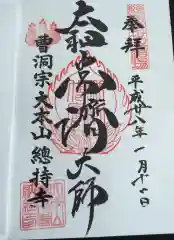 奉拝
平成廿八年一月十一日
太祖常済大師
曹洞宗大本山總持寺